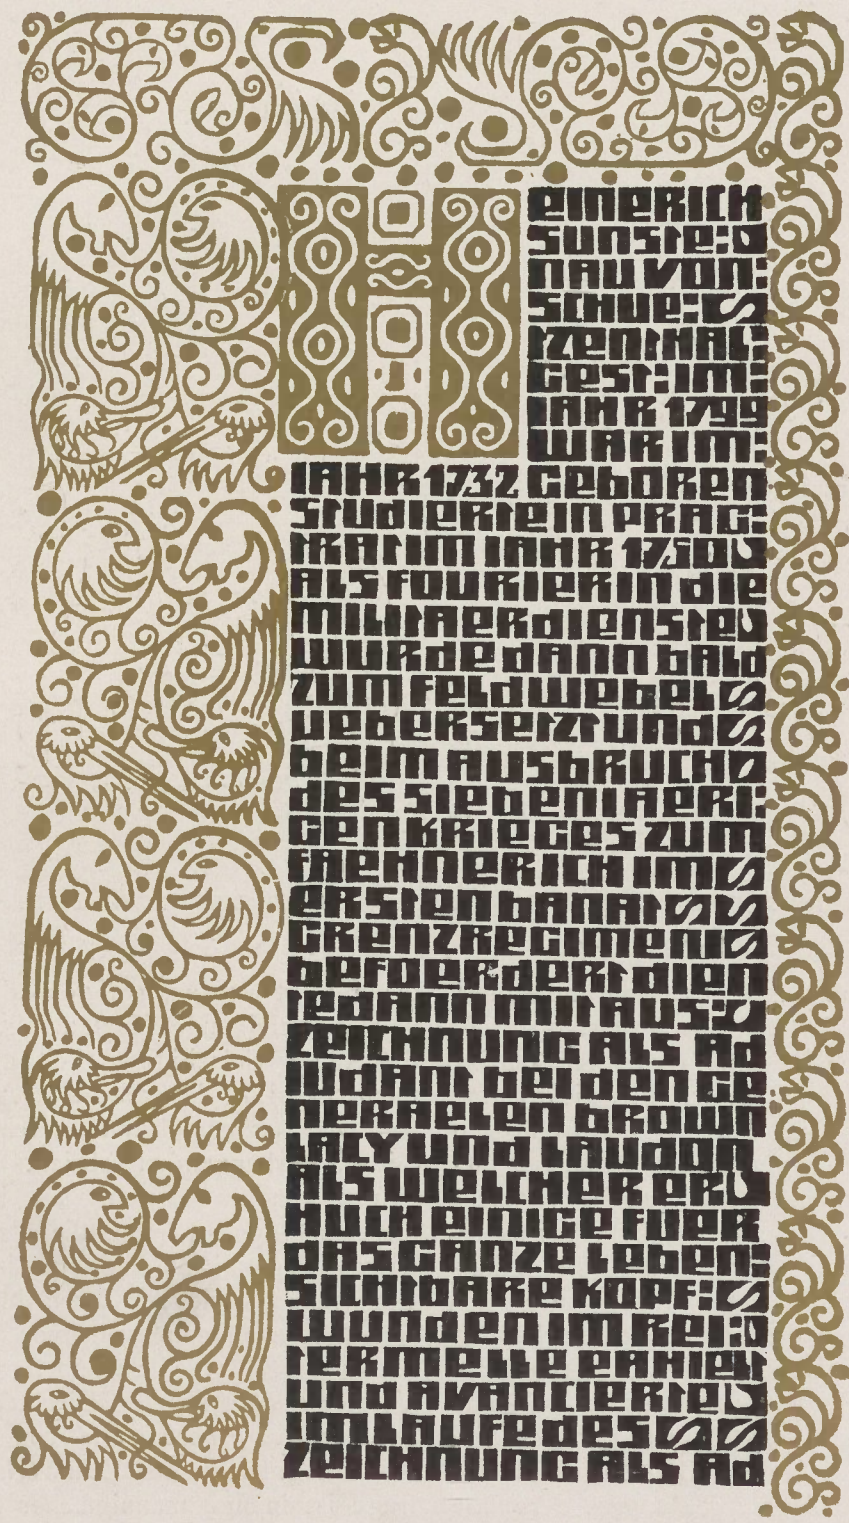 H EINERICH
SUNSTE:
NAU VON:
SCHUE:
TZENTHAL:
GEST: IM:
IAHR 1799
WAR IM:
IAHR 1732 GEBOREN
STUDIERTE IN PRAG:
TRAT IM IAHR 1750
ALS FOURIER IN DIE
MILITAERDIENSTE
WURDE DANN BALD
ZUM FELDWEBEL
UEBERSETZT UND
BEIM AUSBRUCH
DES SIEBENIAERI:
GEN KRIEGES ZUM
FAEHNERICH IM
ERSTEN BANAT
GRENZREGIMENT
BEFOERDERT DIEN
TE DANN MIT AUS:
ZEICHNUNG ALS AD
IUDANT BEI DEN GE
NERAELEN BROWN
LACY UND LAUDON
ALS WELCHER ER
HUCH EINIGE FUER
DAS GANZE LEBEN:
SICHTBARE KOPF:
WUNDEN IM REI:
TERMELLE EAHIELT
UND AVANCIERTE
IM LAUFE DES
ZEICHNUNG ALS AD